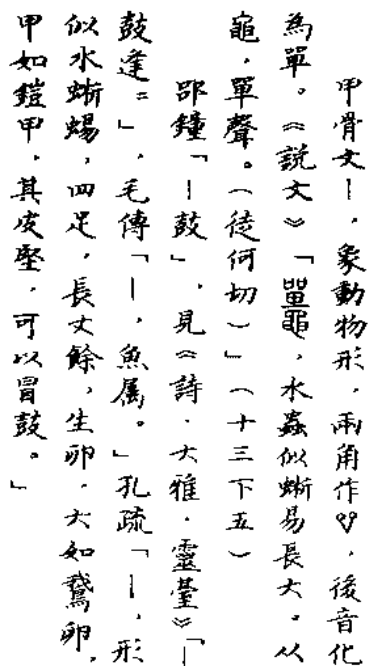 甲骨文丨，象動物形，兩角作，後音化
為單。《說文》「鼉，水蟲似蜥易長大。从
黽，單聲。（徒何切）」（十三下五）
郘鐘「丨鼓」，見《詩．大雅．靈臺》「丨
鼓逢=」，毛傳「丨，魚属。」孔疏「丨，形
似水蜥蜴，四足，長丈餘，生卵，大如鵞卵，
甲如鎧甲，其皮堅，可以冒鼓。」